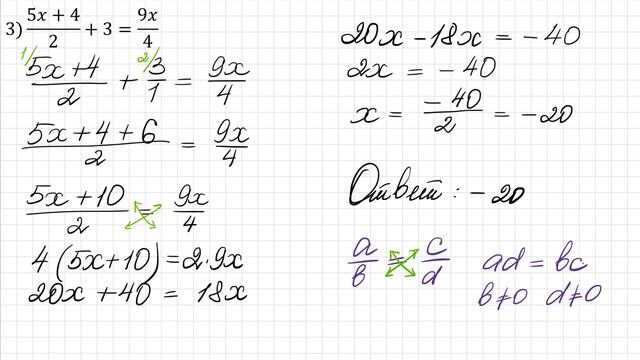 3) (5x + 4)/2 + 3 = 9x/4
1/ (5x+4)/2 + 2/ 3/1 = 9x/4
(5x+4+6)/2 = 9x/4
(5x+10)/2 = 9x/4
4(5x+10)=2·9x
20x +40 = 18x
20x -18x = -40
2x = -40
x = -40/2 = -20
Ответ: -20
a/b = c/d ad = bc
b≠0 d≠0